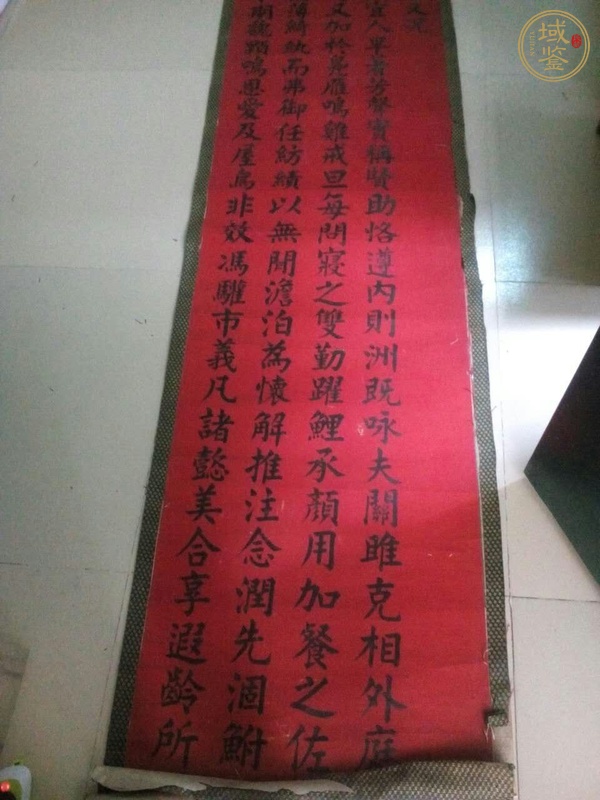 宜人早著芳聲實稱賢助恪遵內則洲既咏夫關雎克相外庭
又加於鳧雁鳴雞戒旦每問寢之雙勤躍鯉承顏用加餐之佐
薄綺紈而弗御任紡績以無閒澹泊為懷解推注念潤先涸鮒
鳴恩愛及屋烏非效馮驩市義凡諸懿美合享遐齡所
域鉴